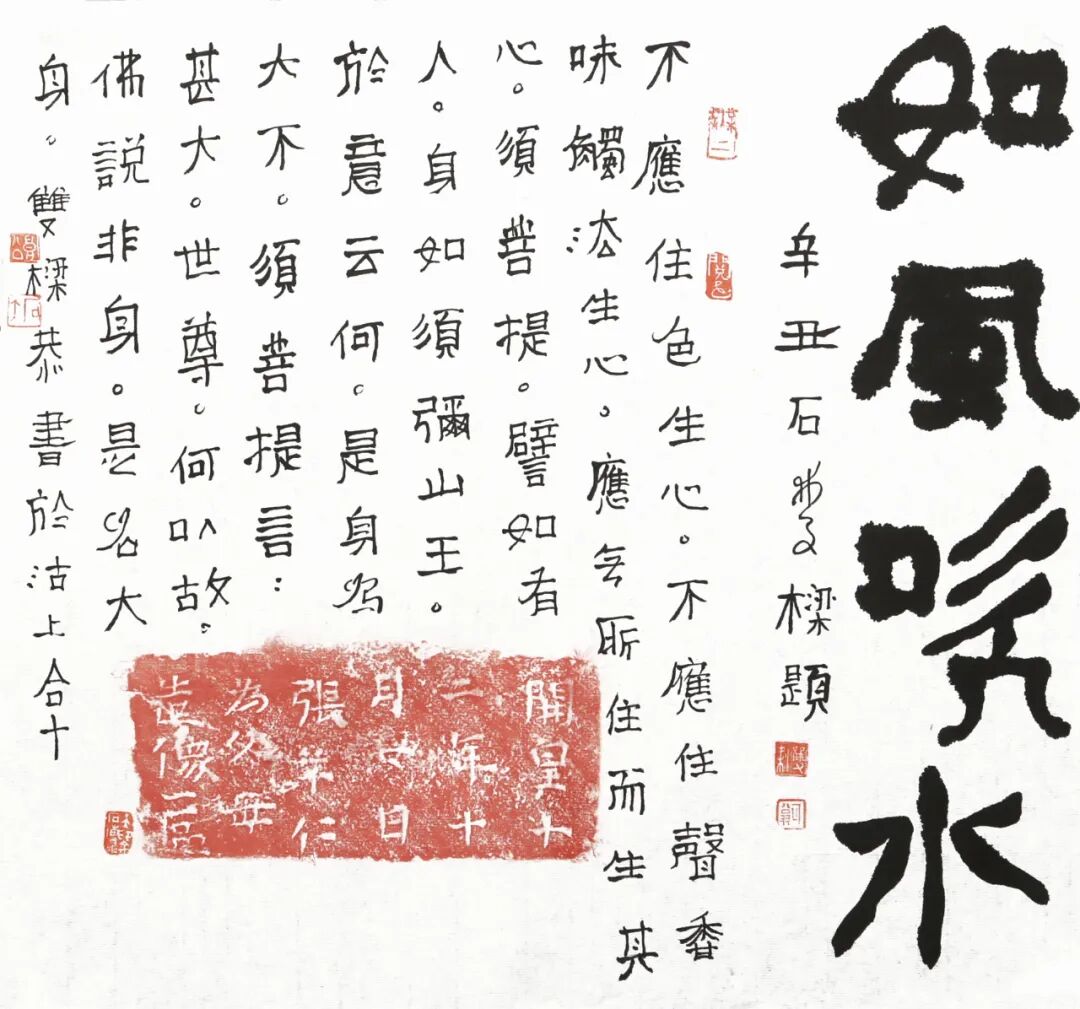 如風吹水
辛丑石樑題
不應住色生心。不應住聲香
味觸法生心。應无所住而生其
心。須菩提。譬如有
人。身如須彌山王。
於意云何。是身為
大不。須菩提言：
甚大。世尊。何以故。
佛說非身。是名大
身。雙樑恭書於沽上合十
開皇十
二年十
月廿日
張仁
為父母
造像一區